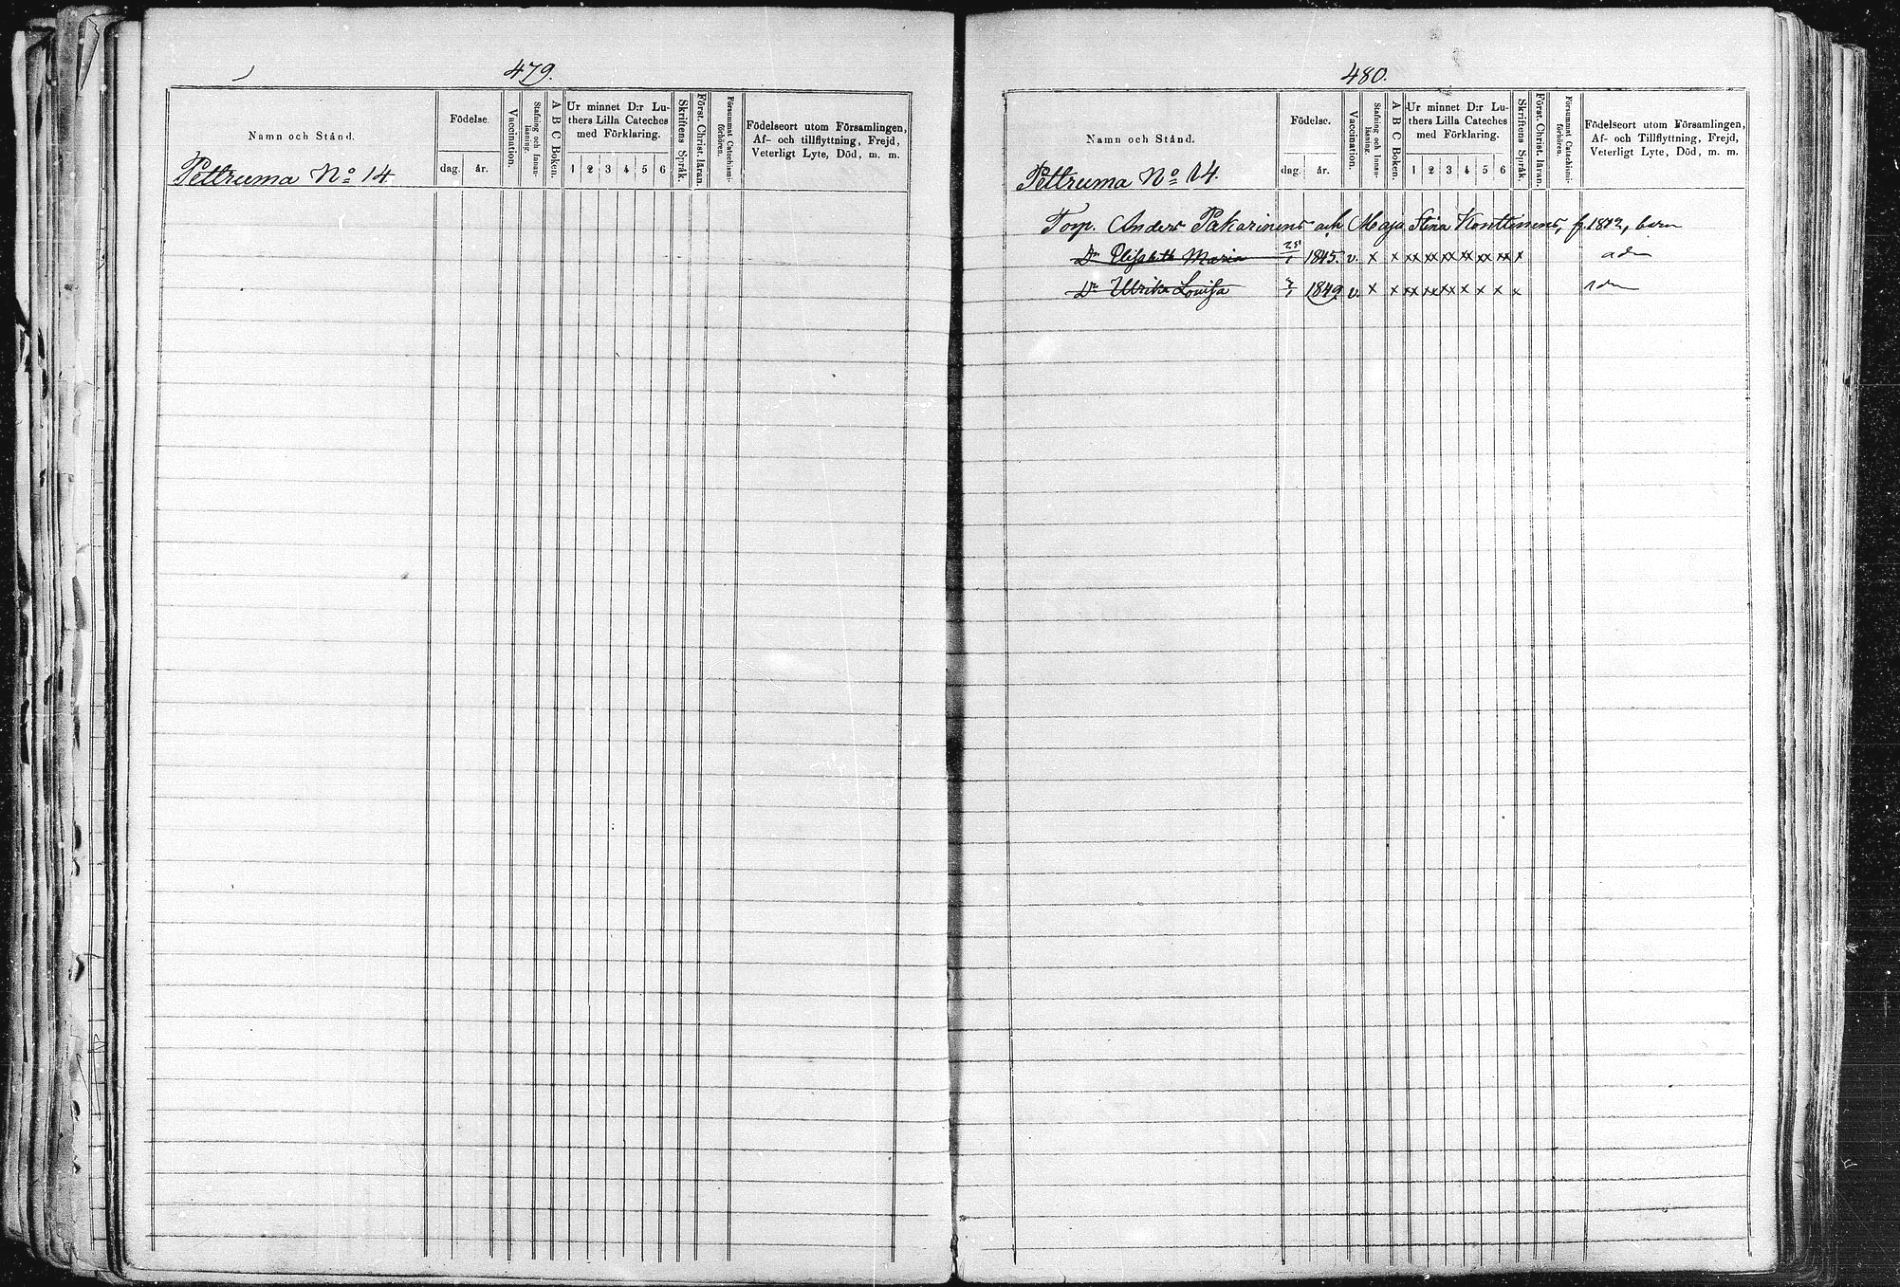 479.
Namn och Stånd.
Födelse
dag. år.
Vaccination.
Stafning och Innan-
läsning.
A B C Boken.
Ur minnet D:r Lu-
thers Lilla Cateches
med Förklaring.
1 2 3 4 5 6
Skriftens Språk.
Först. Christ. läran.
Försummat Catechismi-
förhören.
Födelseort utom Församlingen,
Af- och tillflyttning, Frejd,
Veterligt Lyte, Död, m. m.
Pettruma No 14
480.
Namn och Stånd.
Födelse.
dag. år.
Vaccination.
Stafning och Innan-
läsning.
A B C Boken.
Ur minnet D:r Lu-
thers Lilla Cateches
med Förklaring.
1 2 3 4 5 6
Skriftens Språk.
Först. Christ. läran.
Försummat Catechismi-
förhören.
Födelseort utom Församlingen,
Af- och Tillflyttning, Frejd,
Veterligt Lyte, Död, m. m.
Pettruma No 14.
Torp. Anders Pakarinens och Maja Stina Konttinens, f. 1812, barn
Dr Elisabeth Maria 25/1 1845. v. x x xx xx xx xx xx xx x adm
Dr Ulrika Lovisa 1849 v. x x xx xx xx x x x x adm